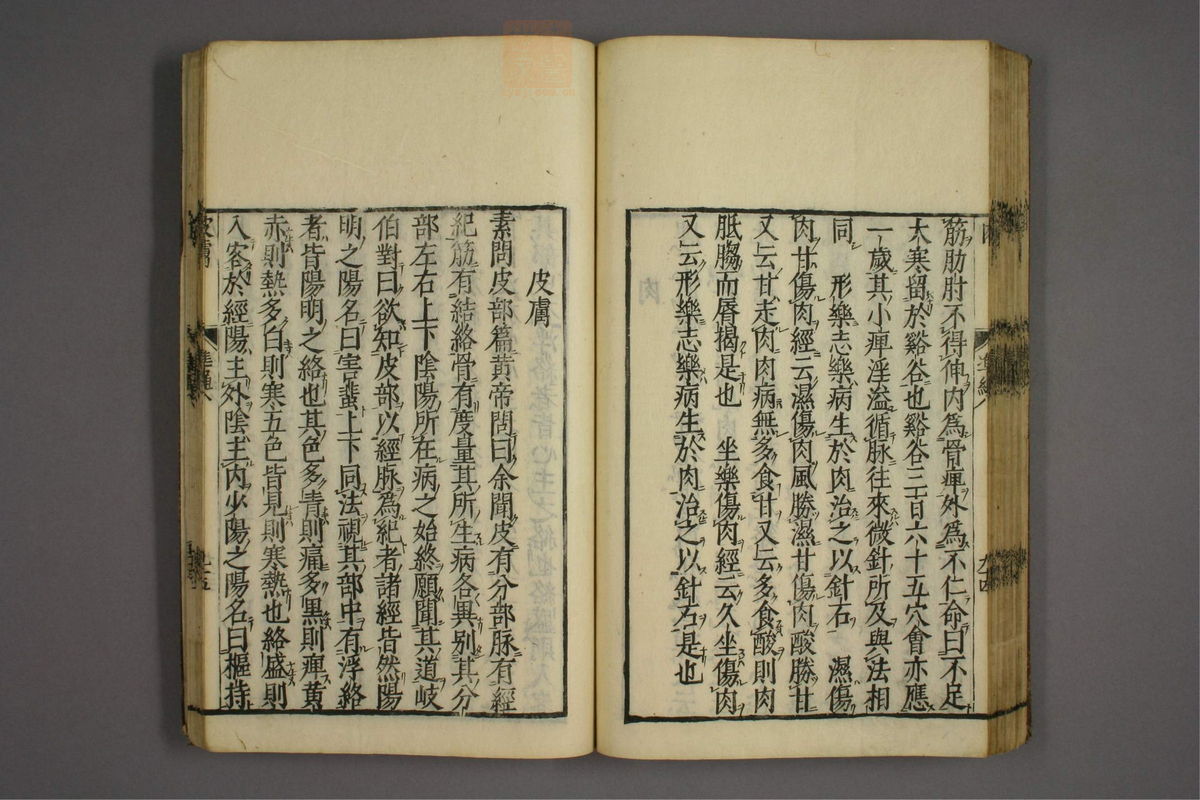 筋肋肘不得伸内爲骨痺外爲不仁命曰不足
大寒留於谿谷也谿谷三百六十五穴會亦應
一歲其小痺淫溢循脉往來微針所及與法相
同　形樂志樂病生於肉治之以針石　濕傷
肉甘傷肉經云濕傷肉風勝濕甘傷肉酸勝甘
又云甘走肉肉病無多食甘又云多食酸則肉
胝䐢而唇揭是也　坐樂傷肉經云久坐傷肉
又云形樂志樂病生於肉治之以針石是也
皮膚
素問皮部篇黃帝問曰余聞皮有分部脉有經
紀筋有結絡骨有度量其所生病各異別其分
部左右上下陰陽所在病之始終願聞其道岐
伯對曰欲知皮部以經脉爲紀者諸經皆然陽
明之陽名曰害蜚上下同法視其部中有浮絡
者皆陽明之絡也其色多青則痛多黑則痺黃
赤則熱多白則寒五色皆見則寒熱也絡盛則
入客於經陽主外陰主内少陽之陽名曰樞持
皮膚